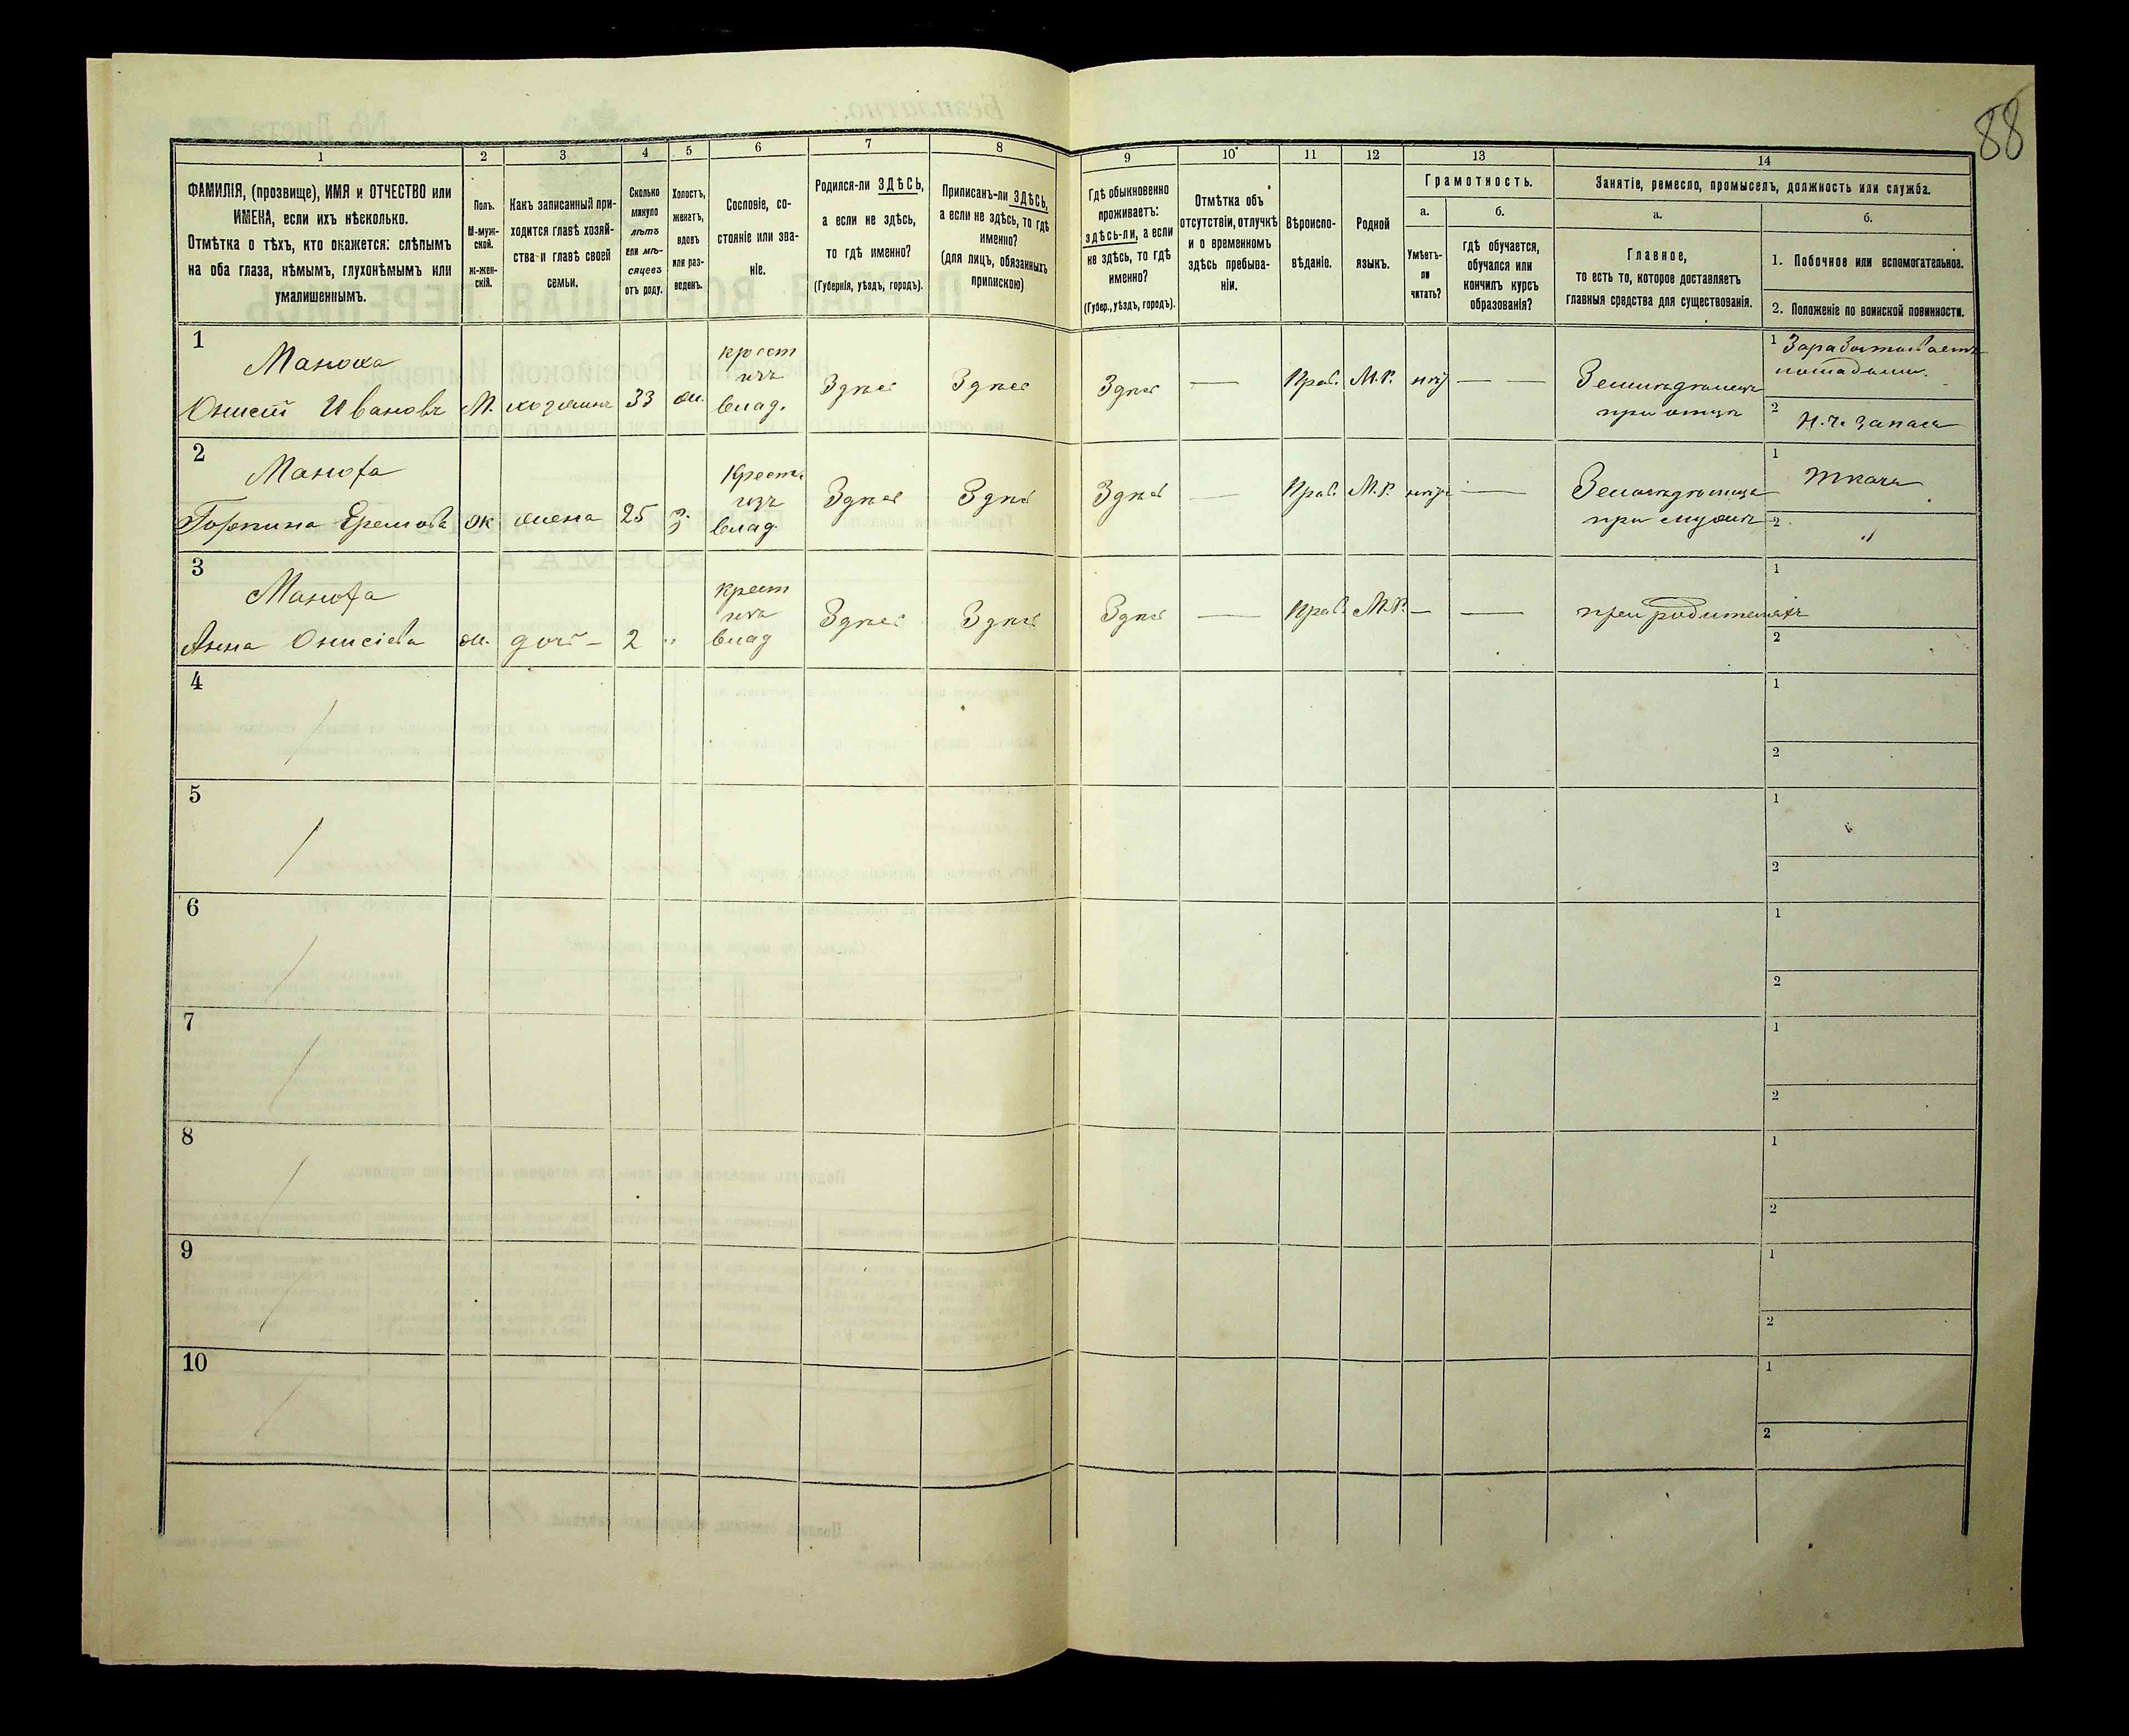 88
1 2 3 4 5 6 7 8 9 10 11 12 13 14
ФАМИЛІЯ, (прозвище), ИМЯ и ОТЧЕСТВО или
ИМЕНА, если ихъ нѣсколько.
Отмѣтка о тѣхъ, кто окажется: слѣпымъ
на оба глаза, нѣмымъ, глухонѣмымъ или
умалишеннымъ.
Полъ.
М-муж-
ской.
Ж-жен-
скій.
Какъ записанный при-
ходится главѣ хозяй-
ства и главѣ своей
семьи.
Сколько
минуло
лѣтъ
или мѣ-
сяцевъ
отъ роду.
Холостъ,
женатъ,
вдовъ
или раз-
веденъ.
Сословіе, со-
стояніе или зва-
ніе.
Родился-ли ЗДѢСЬ,
а если не здѣсь,
то гдѣ именно?
(Губернія, уѣздъ, городъ).
Приписанъ-ли ЗДѢСЬ,
а если не здѣсь, то гдѣ
именно?
(для лицъ, обязанныхъ
припискою)
Гдѣ обыкновенно
проживаетъ:
здѣсь-ли, а если
не здѣсь, то гдѣ
именно?
(Губер., уѣздъ, городъ).
Отмѣтка объ
отсутствіи, отлучкѣ
и о временномъ
здѣсь пребыва-
ніи.
Вѣроиспо-
вѣданіе.
Родной
языкъ.
Грамотность.
а.
Умѣетъ-
ли
читать?
б.
гдѣ обучается,
обучался или
кончилъ курсъ
образованія?
Занятіе, ремесло, промыселъ, должность или служба.
а.
Главное,
то есть то, которое доставляетъ
главныя средства для существованія.
б.
1. Побочное или вспомогательное.
2. Положеніе по воинской повинности.
1
Маноха
Онисій Ивановъ М. хозяинъ 33 ж.
крест
изъ
влад.
Здѣсь Здѣсь Здѣсь — Прав. М.Р. — —
Земледѣлецъ
при отцѣ
1 Зарабатываетъ
лошадьми.
2 Н.Ч. запаса
2
Маноха
Горпина Еремова ж жена 25 З.
Крест.
изъ
влад.
Здѣсь Здѣсь Здѣсь — Прав. М.Р. —
Земледѣлица
при мужѣ
1 Ткачъ
2 "
3
Маноха
Анна Онисіева ж. дочь - 2 "
крест
изъ
влад
Здѣсь Здѣсь Здѣсь — Прав. М.Р. — —
при родителяхъ
1
2
4 1
2
5 1
2
6 1
2
7 1
2
8 1
2
9 1
2
10 1
2